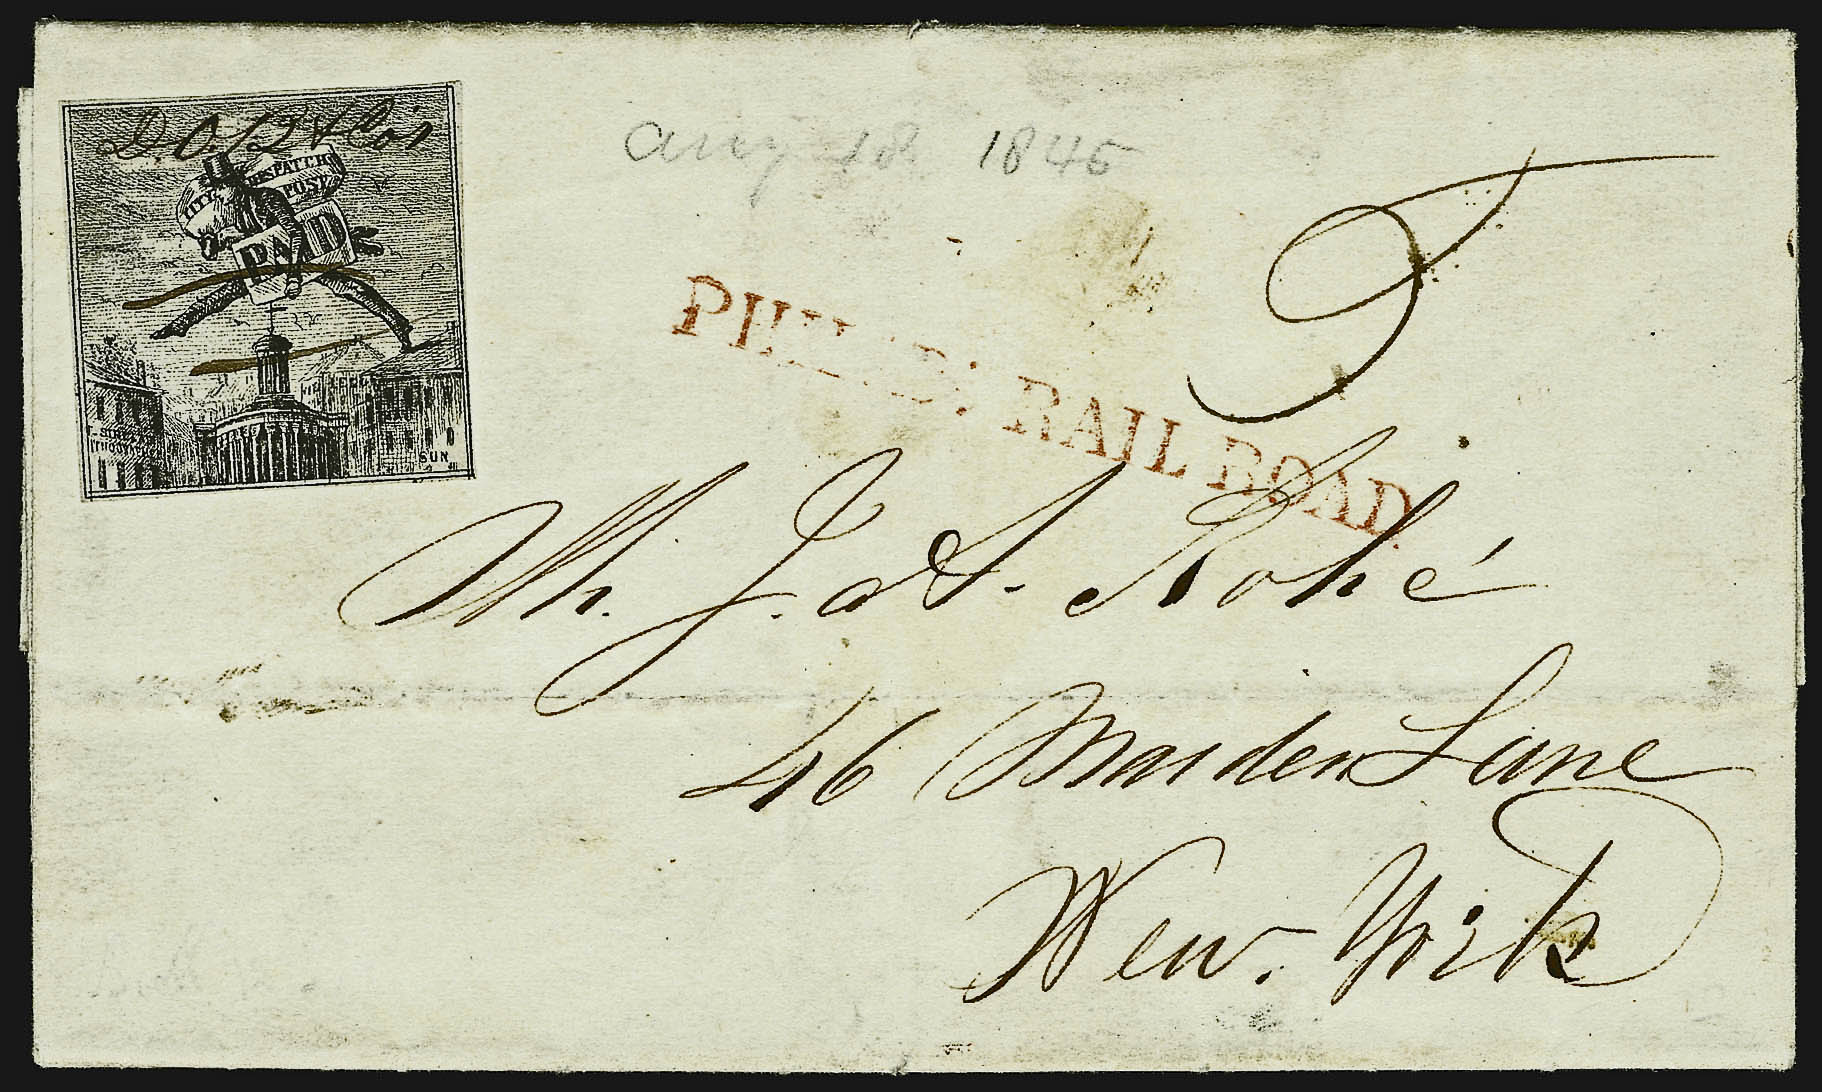 D.O.B & Co's
CITY DESPATCH
POST
PAID
SUN
Aug 18 1845
5
PHILAD: RAIL ROAD.
M. J. & A. Rohé
46 Maiden Lane
New. York